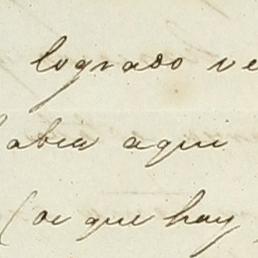 logrado ve
abia aqui
(de que hay